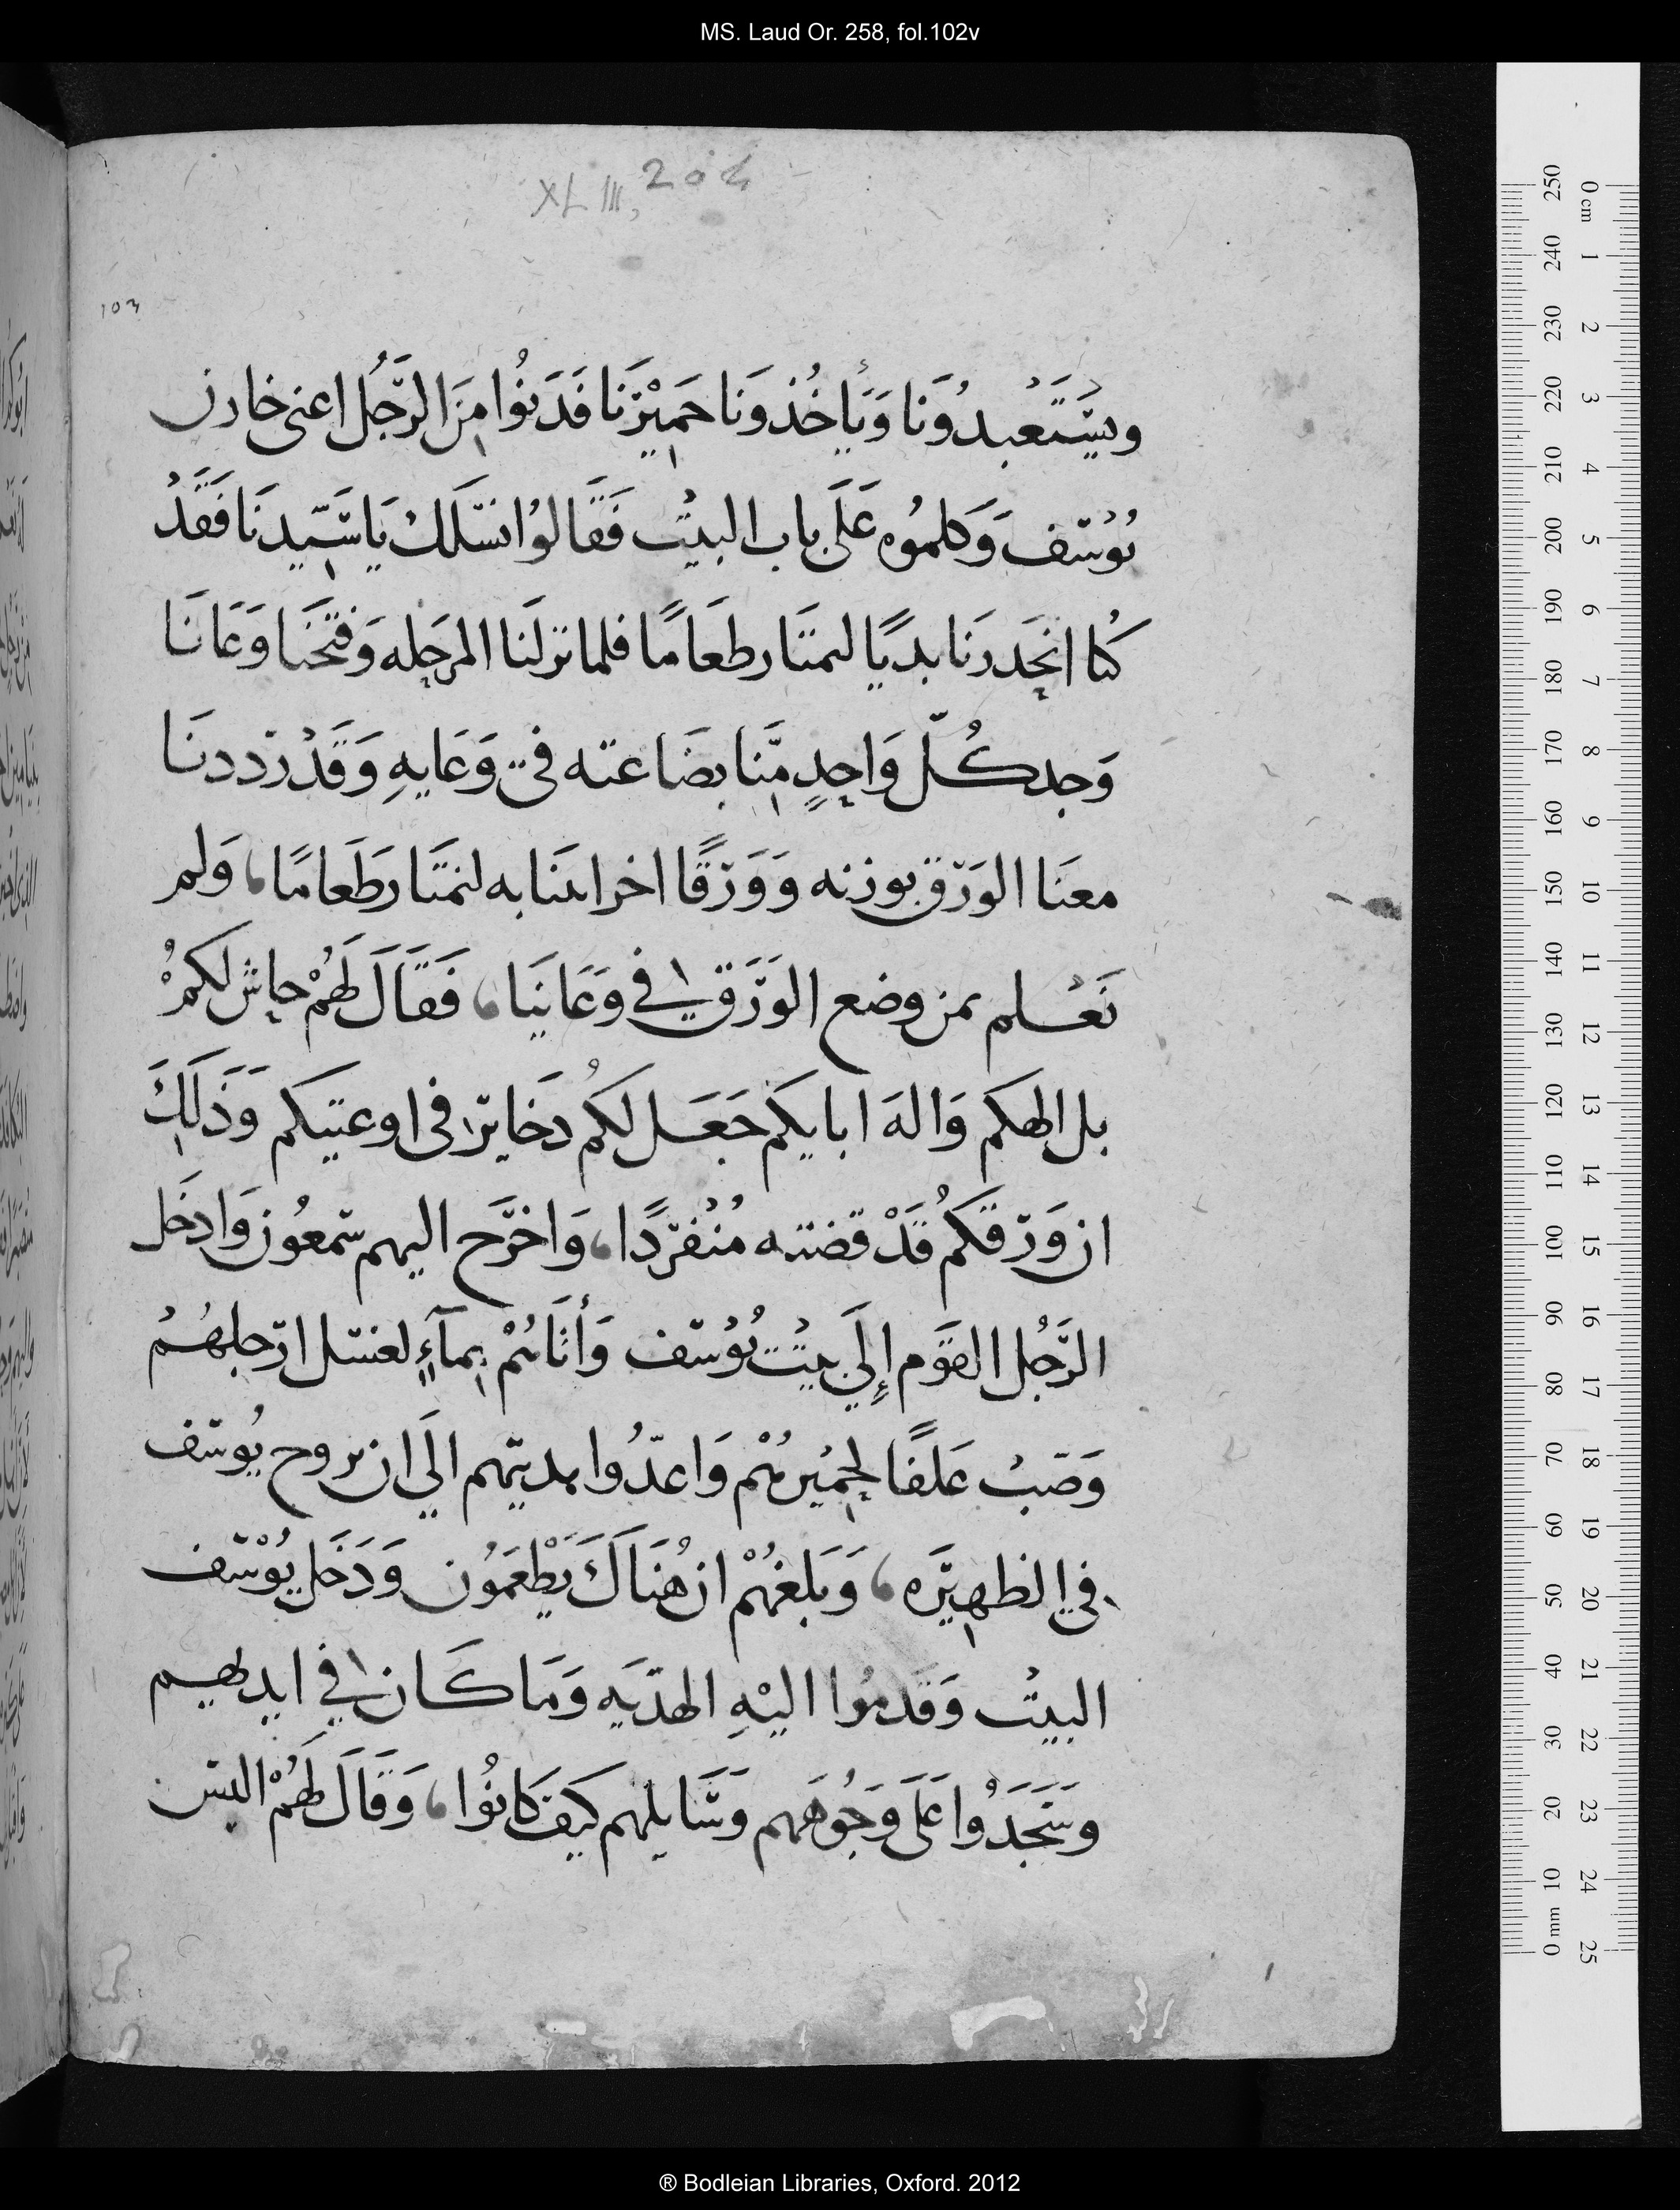 MS. Laud Or. 258, fol.102v
XLIII, 20
103
ويَسْتَعْبدُونَا وَيَأخُذونَا حَمِيْرَنَا فَدَنوُا مِنَ الرَّجُل اعنى خازن
يُوُسف وَكلموُه عَلَى باب البيْت فَقَالوُا نسَلَك يَا سَيّدنَا فَقَدْ
كُنا انحَدرنَا بديًا لنمتَار طعَامًا فلما نزلنَا المرحَله وَفتَحنَا وَعَانَا
وَجد كُلّ وَاحِدٍ مِنّا بضَاعته في وَعَايهِ وَقَدْ رَددنَا
معنَا الوَرَق بوزنه وَوَرَقًا اخر اتنَا به لنمتَار طَعامًا، وَلم
نَعْلم من وضع الوَرَق في وَعَانَيَا، فَقَالَ لَهُمْ حاش لكمُْ
بل الهكم وَالهَ ابايكم جَعَل لكمُ دخايرًا في اوعتيكم وَذَلكَ
ان وَرَقكمُ قَدْ قبضته مُنْفرَدًا، وَاخرَج اليهم سمعُون وَادخَل
الرَّجُل القَوَم إِلَي بيْت يُوُسف وَأتَاهُمْ بِمآءٍ لغسل ارجلهُمْ
وَصَبْ عَلفًا لحِميْرهُمْ وَاعدّوُا هديتهم الَي ان يروح يُوسف
في الظهِيرَه، وَبَلغهُمْ ان هُنَاكَ يَطْعَمُون وَدَخَل يُوْسف
البيْت وَقَدمُوا اليْهِ الهدَيَه وَمَا كَان في ايديهم
وسَجَدَوُْا عَلَى وَجُوهَهم وسَّايلهم كَيف كَانوُا، وَقَالَ لهَمُْ اليس
® Bodleian Libraries, Oxford. 2012